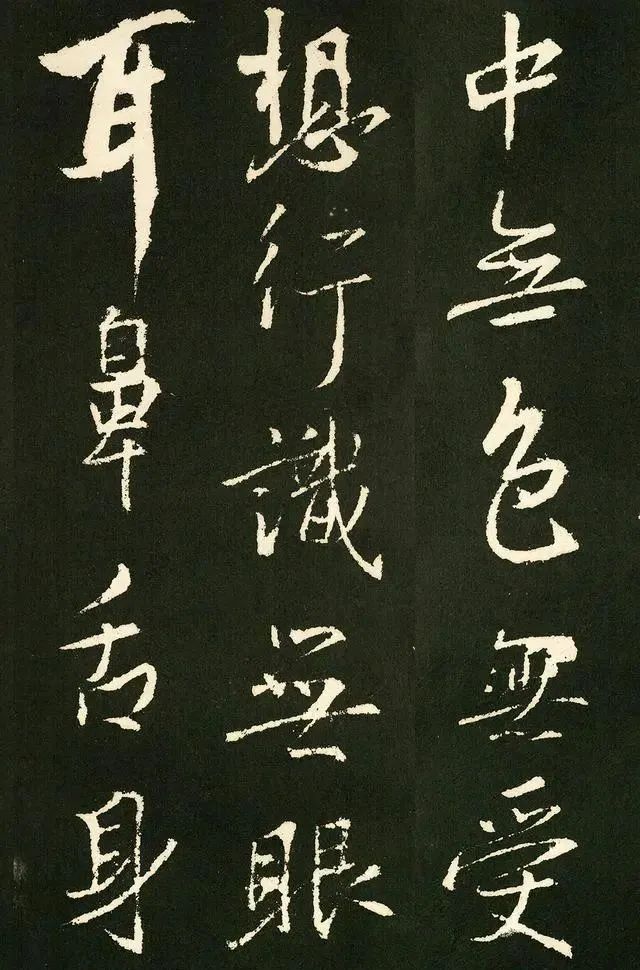 中無色無受
想行識無眼
耳鼻舌身